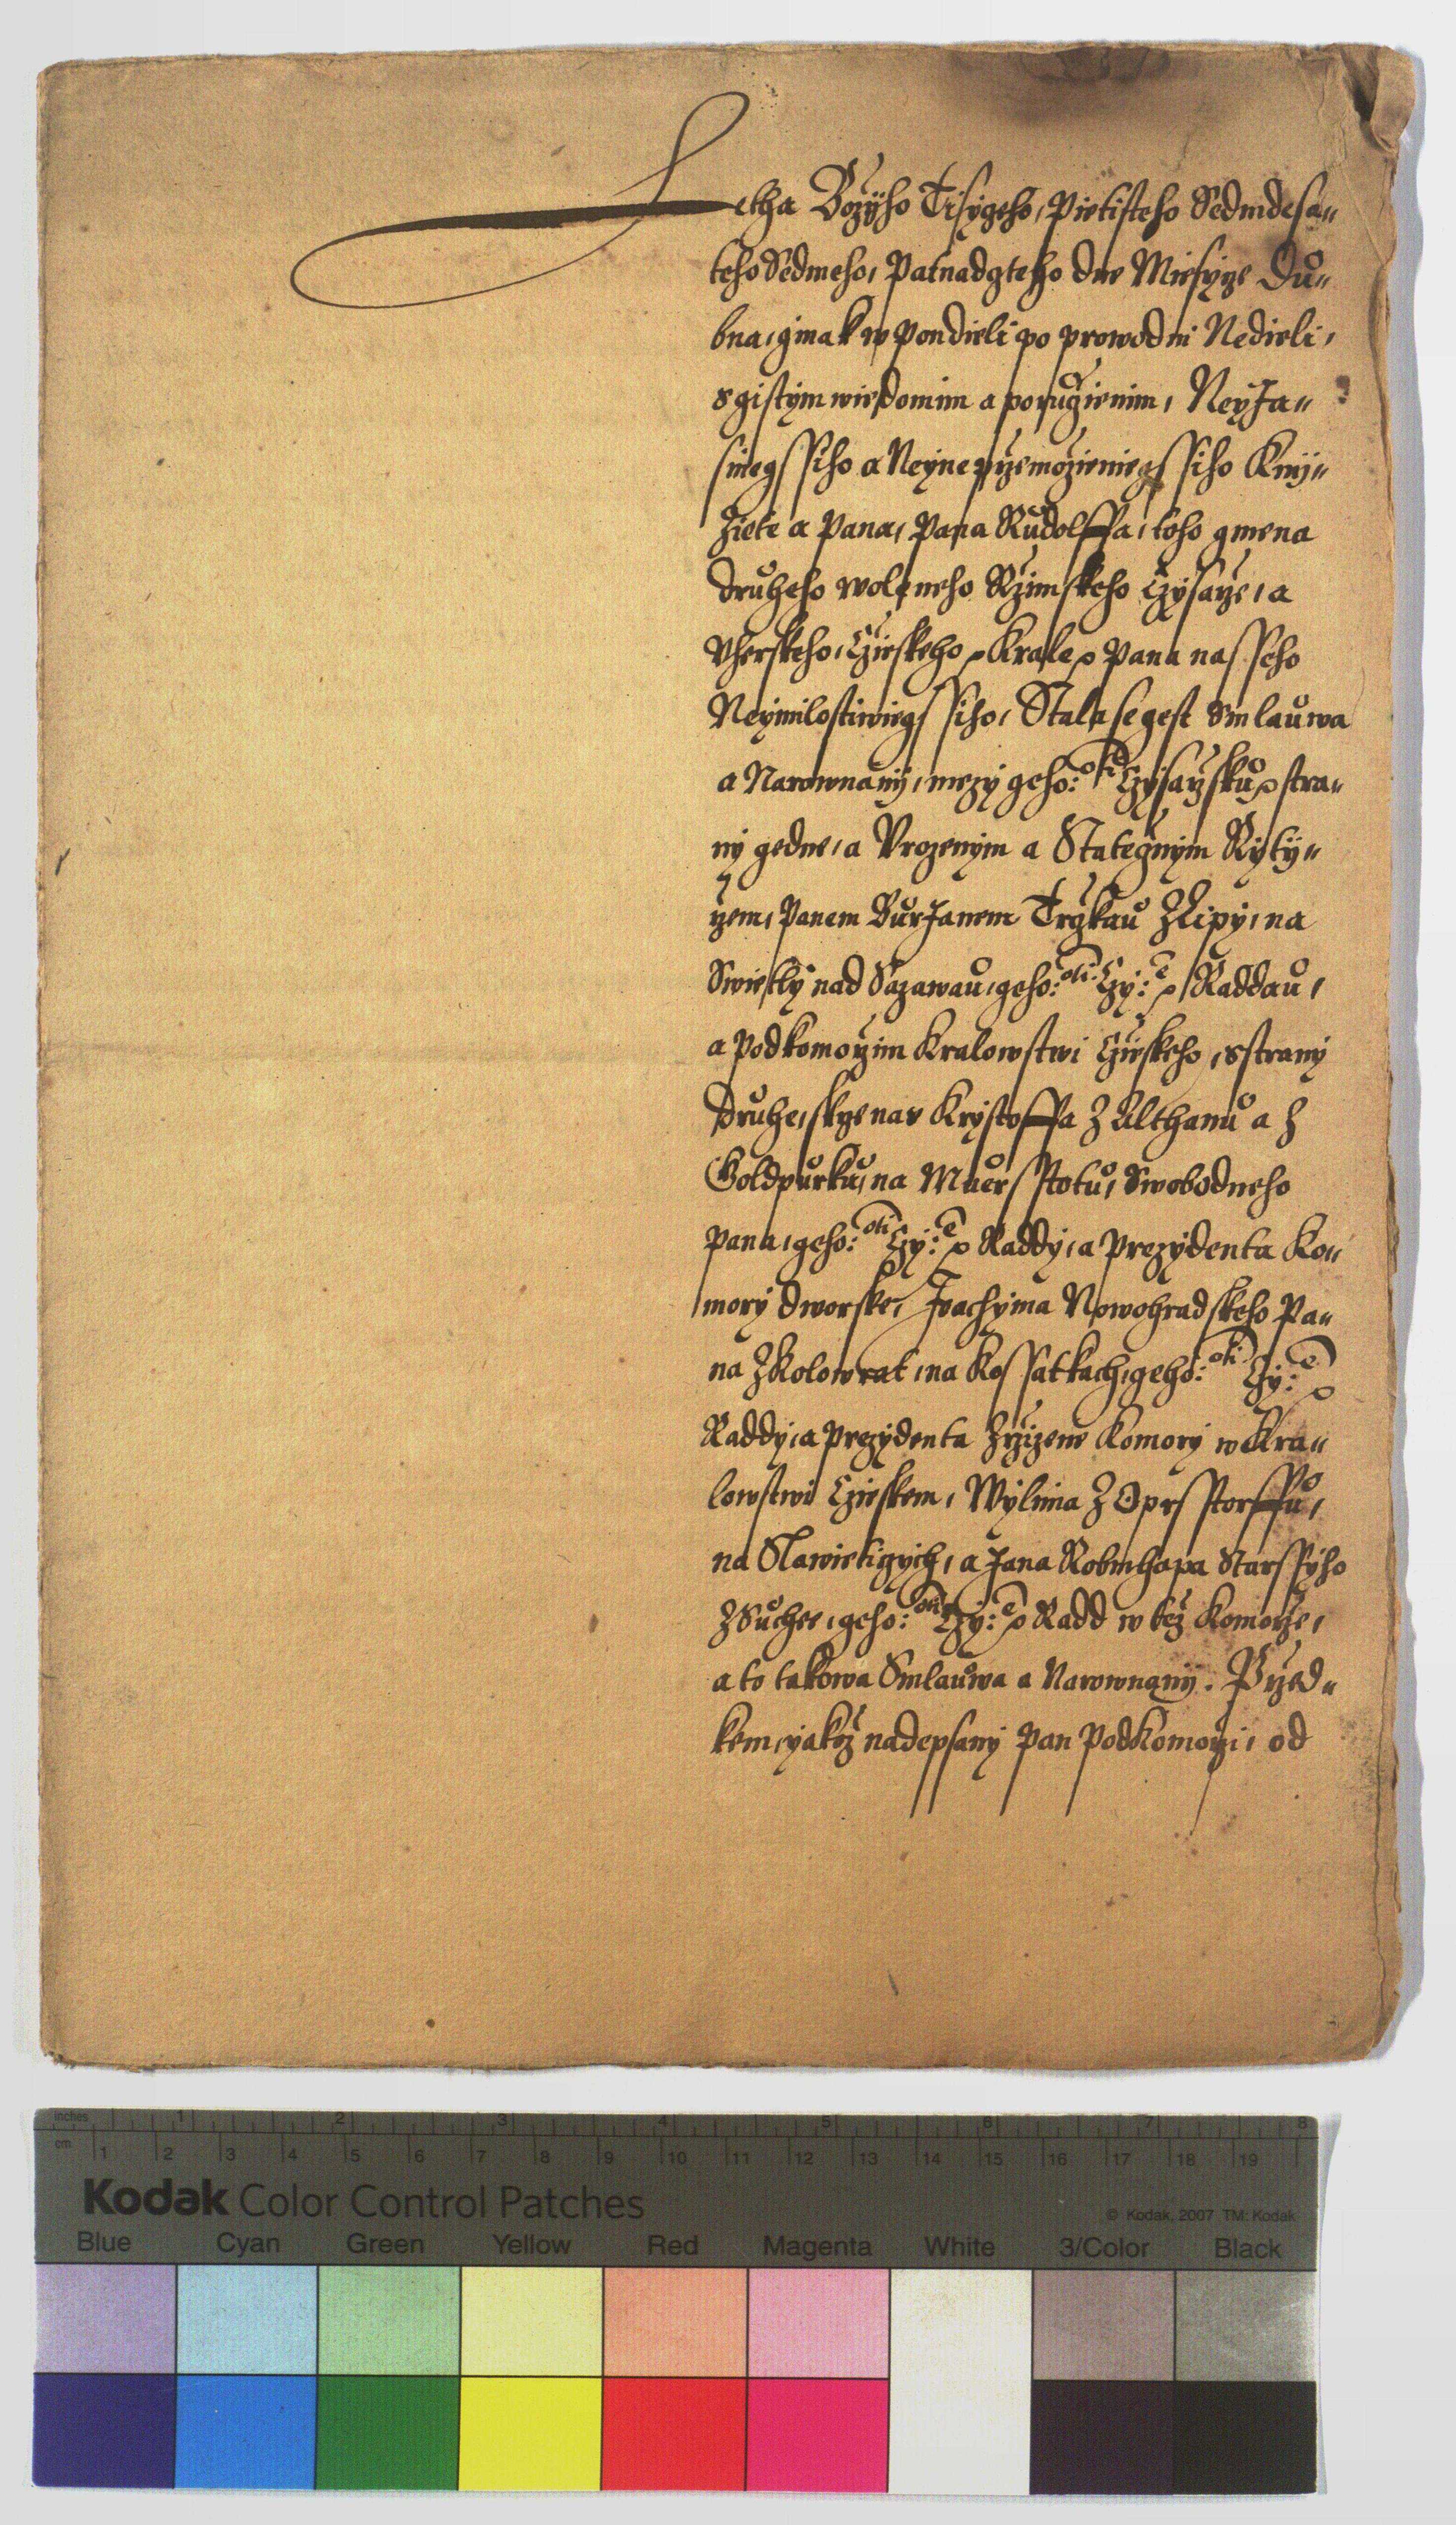 Letha Božyho Tisyczeho, Pietisteho Sedmdesa„
teho Sedmeho, Patnadczteho dne Miesycze Du„
bna, ginak w Pondieli po prowodni Nedieli,
s gistym wiedomim a poruczienim, NeyJa„
sniegssiho a Neynepržemoženiegssiho Knij„
žiete a Pana, Pana Rudolffa, toho gmena
druheho woleneho Ržimskeho Czysarže, a
Vherskeho, Czieskeho ꝛc Krale ꝛc Pana nasseho
Neymilostiwiegssiho, Stala se gest Smlauwa
a Narownany, mezy geho: oti Czysaržsku ꝛc stra„
ny gedne, a Vrozenym a Stateczným Rytij„
ržem, Panem BurJanem Trczkau Z Lipy, na
Swietly nad Sazawau, geho: oti Czy: e ꝛc Raddau,
a Podkomoržim Kralowstwi Czieskeho, s strany
druhe, skrze nas Krysstoffa Z Althanu a Z
Goldpurku, na Muersstotu, Swobodneho
Pana, geho: oti Czy: e ꝛc Raddy, a Prezydenta Ko„
mory dworske, Joachyma Nowohradskeho Pa„
na Z Kolowrat, na Kossatkach, geho: oti Czy: e ꝛc
Raddy, a Prezydenta Zržizene Komory w Kra„
lowstwi Czieskem, Wylima Z Oprsstorffu,
na Slawieticzych, a Jana Robmhapa Starssyho
Z Suchee, geho: oti Czy: e ꝛc Radd w též Komorže,
a to takowa Smlauwa a Narownany. Pržed„
kem, yakož nadepsany Pan Podkomorži, od
inches 1 2 3 4 5 6 7 8
cm 1 2 3 4 5 6 7 8 9 10 11 12 13 14 15 16 17 18 19
Kodak Color Control Patches
© Kodak, 2007 TM: Kodak
Blue Cyan Green Yellow Red Magenta White 3/Color Black